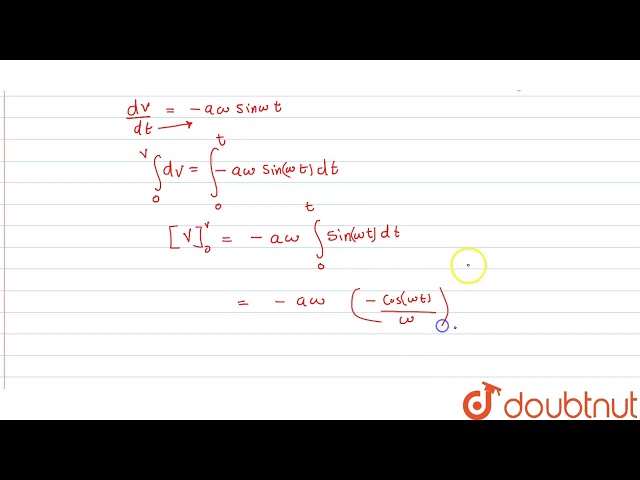 dv/dt = -aω sinωt
∫₀ᵛ dv = ∫₀ᵗ -aω sin(ωt) dt
[v]₀ᵛ = -aω ∫₀ᵗ sin(ωt) dt
= -aω (-cos(ωt)/ω)
doubtnut